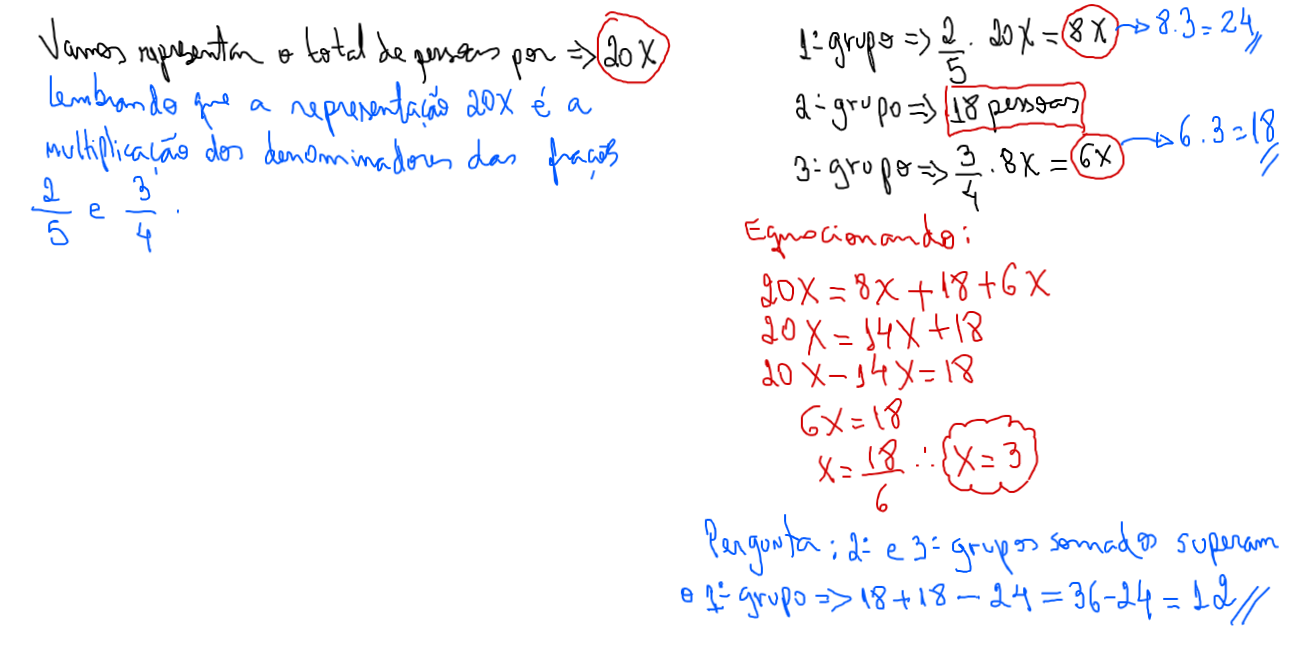 Vamos representar o total de pessoas por => 20X
lembrando que a representação 20X é a
multiplicação dos denominadores das frações
2/5 e 3/4.
1º grupo => 2/5 . 20X = 8X → 8.3 = 24//
2º grupo => 18 pessoas
3º grupo => 3/4 . 8X = 6X → 6.3 = 18//
Equacionando:
20X = 8X + 18 + 6X
20X = 14X + 18
20X - 14X = 18
6X = 18
X = 18/6 ∴ X = 3
Pergunta: 2º e 3º grupos somados superam
o 1º grupo => 18 + 18 - 24 = 36 - 24 = 12//